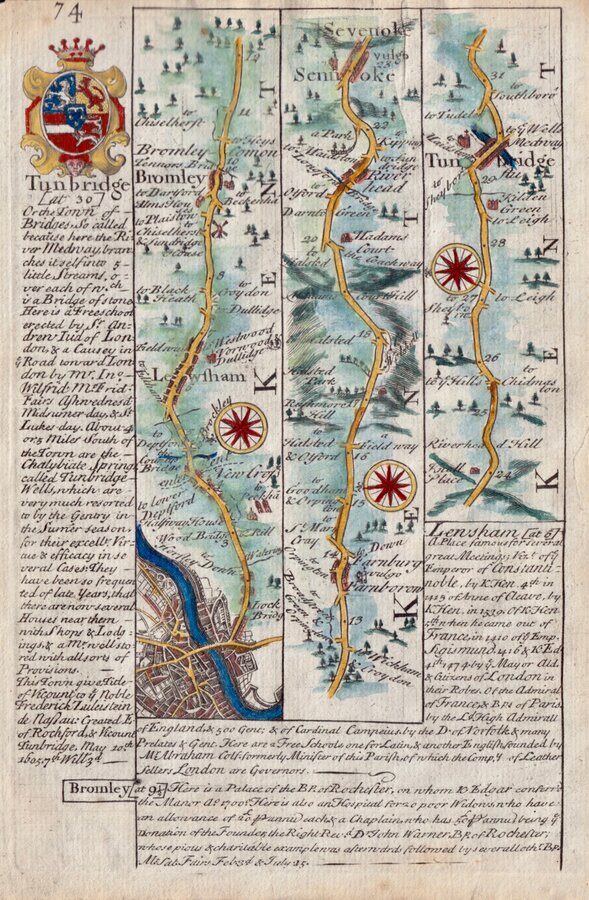 74
Tunbridge
[at 30]
Or the Town of
Bridges. So called
because here the Ri
ver Medway bran
ches it self into 5
little Streams, o=
ver each of wch
is a Bridge of stone
Here is a Freeschool
erected by Sr. An
drew Jud of Lon
don, & a Causey in
ye Road toward Lon
don by Mr. Jno.
Wilfrid Mr. Frid.
Fairs Ashwednesd
Midsumer-day, & St.
Lukes-day. About 4
or 5 Miles South of
the Town are the
Chalybiate Springs
called Tunbridge
Wells, which are
very much resorted
to by the Gentry in
the Sumer Season
for their excellt. Vir=
tue & efficacy in se
veral Cases. They
have been so frequen
ted of late Years, that
there are now several
Houses near them
with Shops & Lodg=
ings, & a Mt. well sto
red with all sorts of
Provisions.
This Town give Title
of Vicount to ye Noble
Frederick Zuleistein
de Nassau; Created E
of Rochford, & Vicount
Tunbridge, May 10th
1695. 7th Will 3d
12
11
to
Chiselherst
to Heys
Bromley Comon
Bromley
to Dartford
Beckenha
to Plaiston
Chiselherst
& Sundridge
House
8
to Black
Heath
to
Croydon
Dullidge
Fieldway
Westwood
Norwood
Dullidge
Lewisham
Brockley
to
Deptford
Bridge
enter Kent
New Cross
Peckhā
to lower
Deptford
Halfway House
Wood Bridge
3
Rill
Watering
Lock
Bridg
KENT
Sevenoke
vulgo
Sennocke
23
22
a Park
to Kipping
River
head
to
Otford
Darnton Green
20
to
Halsted
Madams
Court
the Coachway
Madams Court Hill
to Halsted
18
Halsted
Park
Rushmores
Hill
to
Halsted
& Otford
a Fieldway
16
to
Goodham
& Orpington
to
St. Mary
Cray
14
to
Orpington
to Down
Farnburg
vulgo
Farnborow
13
to
Wickham
& Croydon
KENT
31
to
Southboro
to Tudely
to ye Wells
Medway
Tunbridge
29
Hilden
Green
to Leigh
28
to
27
to Leigh
26
to ye Hills
Chidings
ton
25
Riverhead Hill
Knoll
Place
24
KENT
Lensham [at 6]
A Place famous for several
great Meetings; Vizt. of ye
Emperor of Constanti=
noble, by K Hen. 4th in
1413 of Anne of Cleave, by
K Hen. in 1539. of K Hen.
5th wn. he came out of
France, in 1410 of ye Emp.
Sigismund, 1416, & K Ed
4th, 1474 by ye Mayor Ald.
& Citizens of London in
their Robes. Of the Admiral
of France, & Bp. of Paris,
by the Ld. High Admirall
of England, & 500 Gent; & of Cardinal Campeius, by the D. of Norfolk & many
Prelates & Gent. Here are a Free Schools one for Latin, & another English founded by
Mr. Abraham Colf formerly Minister of this Parish, of which the Compy. of Leather
Sellers London are Governors.
Bromley at 9¼] Here is a Palace of the BP. of Rochester, on whom K Edgar confer'd
the Manor Ao. 1700s. Here is also an Hospital for 20 poor Widows, who have
an allowance of £20 p Annū each, & a Chaplain, who has 50 p Annū being ye
Donation of the Founder, the Right Revd. Dr. John Warner, BP. of Rochester,
whose pious & charitable example was afterwards followed by several othr. BPs
Mt. Sat. Fairs Feb. 3d. & July 25.